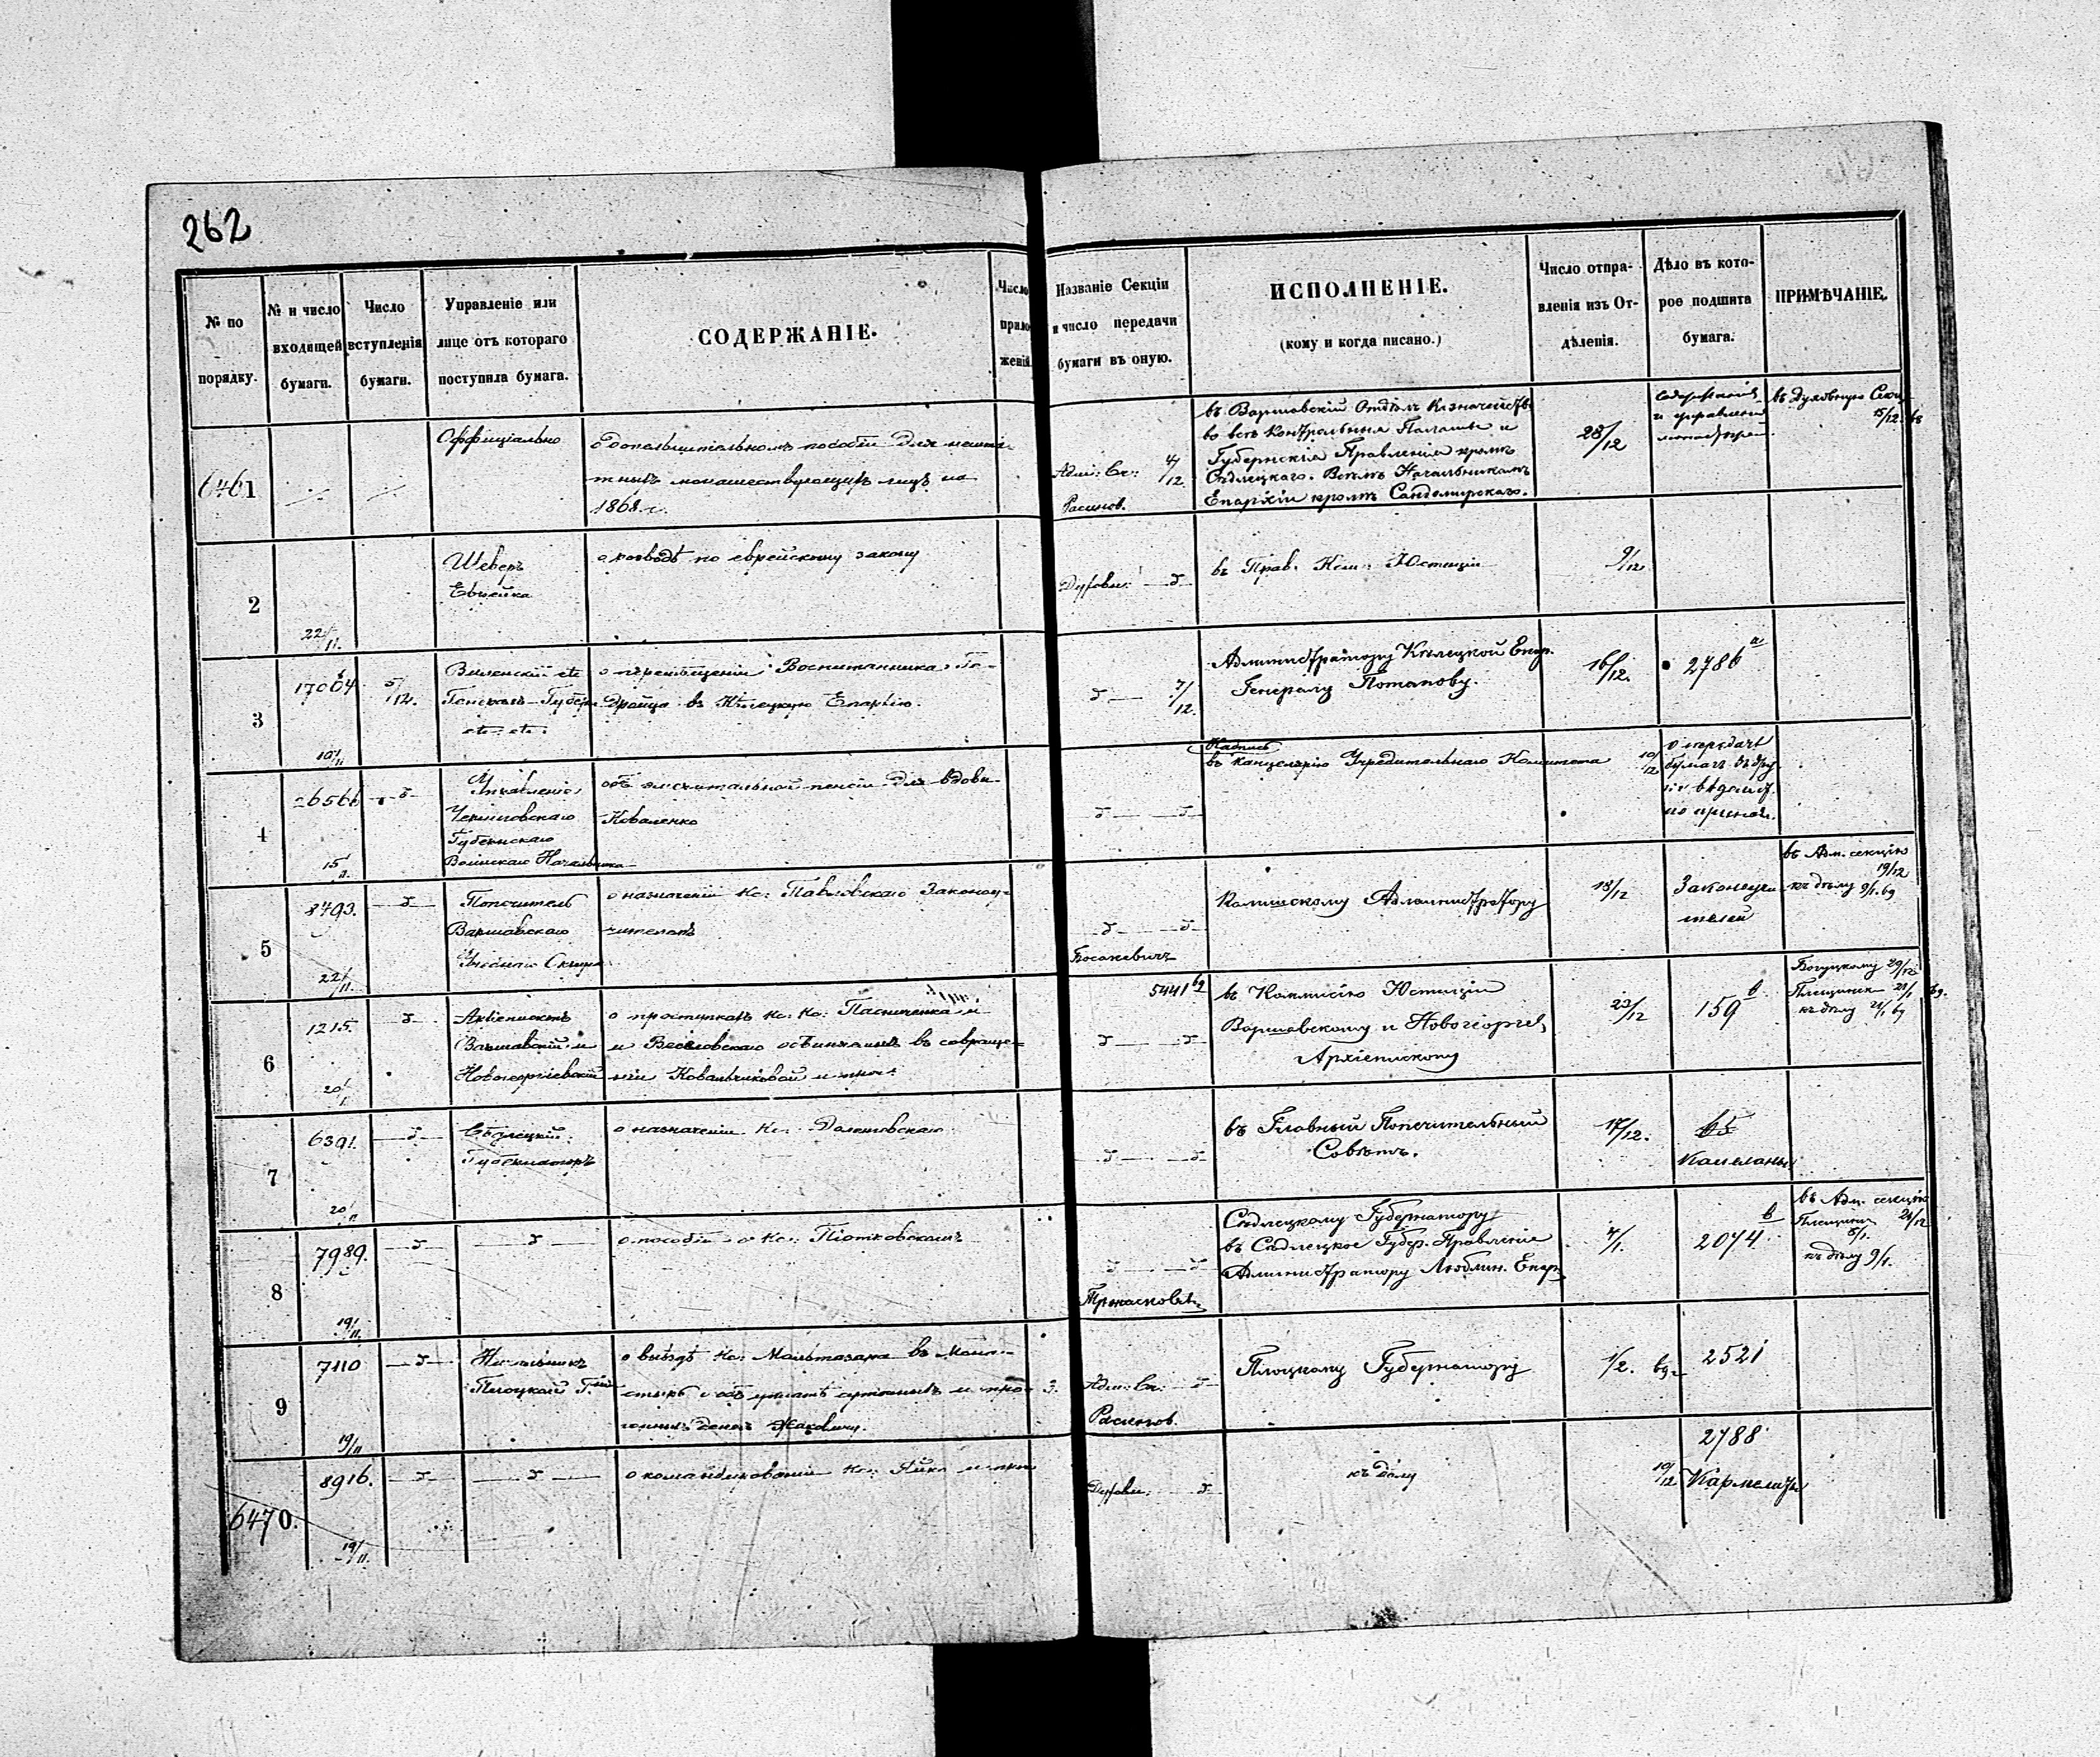 262
№ по порядку.
№ и число входящей бумаги.
Число вступленія бумаги.
Управленіе или лице отъ котораго поступила бумага.
СОДЕРЖАНІЕ.
Число приложеній
Названіе Секціи и число передачи бумаги въ оную.
ИСПОЛНЕНІЕ.
(кому и когда писано.)
Число отправленія изъ Отдѣленія.
Дѣло въ которое подшита бумага.
ПРИМѢЧАНІЕ.
6461
Оффиціально
о дополнительномъ пособіи для
тныхъ монашествующихъ лицъ на
1868 г.
Адм: Ск: 4/12.
Расинов.
въ Варшавскій Отдѣлъ Казначейств
во всѣ Контрольныя Палаты и
Губернскія Правленія кромѣ
Сѣдлецкаго. Всѣмъ Начальникамъ
Епархіи кромѣ Сандомирскаго.
28/12
и управленія
въ Духовную Секц.
15/12
2
22/11.
Шеверъ
Еврейка
о разводѣ по еврейскому закону
Духовн:
въ Прав. Ком: Юстиціи
9/12
3
17064
5/12.
Виленскій etc
Генералъ-Губерн
etc. etc.
о перемѣщеніи Воспитанника
въ Кѣлецкую Епархію.
7/12.
Администратору Кѣлецкой Епар.
Генералу Потапову.
16/12.
2786 а
4
10/11
26566
Управленіе
Черниговскаго
Губернскаго
Воинскаго Начальника
объ эмеритальной пенсіи для вдовы
Коваленко
Надпись
въ канцелярію Учредительнаго Комитета
10/12
о передачѣ
бумагъ въ дру
гія вѣдомст.
по принад.
5
15/11.
8493.
Попечитель
Варшавскаго
Учебнаго Округа
о назначеніи Кс: Павловскаго Законоу-
чителемъ
Босакевичъ
Калишскому Администратору
18/12
Законоучи
телей
въ Адм. секцію
19/12
къ дѣлу 9/1. 69
6
22/11.
1215.
Архіепископъ
Варшавскій и
Новогеоргіевскій
о проступкахъ Кс: Кс: и
и Веселовскаго обвиняемыхъ въ совраще-
ніи Ковальчиковой и проч:
5441 69
въ Коммисію Юстиціи
Варшавскому и Новогеоргіев
Архіепископу
23/12
159 в
Богуцкому 29/12
21/1 69.
къ дѣлу 21/1 69
7
20/11
6391.
Сѣдлецкій
Губернаторъ
о назначеніи Кс:
въ Главный Попечительный
Совѣтъ.
17/12.
65
Капеланы
8
20/11
7989.
о пособіи Кс: Піотковскому
Сѣдлецкому Губернатору
въ Сѣдлецкое Губер. Правленіе
Администратору Люблин. Епар.
4/1.
2074 в
въ Адм. секцію
21/12
5/1.
къ дѣлу 9/1.
9
19/11.
7110
Начальникъ
Плоцкой Г.
о выѣздѣ Кс: Мальтазара въ Мона-
стырь объ уплатѣ суточныхъ и про-
гонныхъ денегъ
3.
Адм: Ск:
Расинов.
Плоцкому Губернатору
1/2. 69
2521
6470.
19/11
8916.
19/11.
о командированіи Кс:
Духовн:
къ дѣлу
10/12
2788
Кармелиты